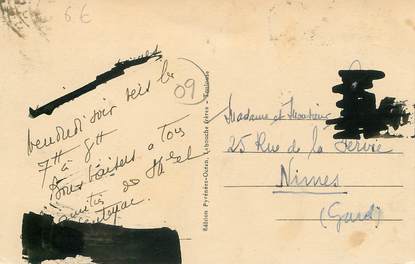 6€
09
vendredi soir vers les
7H à 8H
Bons baisers à Tous
Edition Pyrénées-Océan, Labouche frères - Toulouse
Madame et Monsieur
25 Rue de la Servie
Nimes
(Gard)